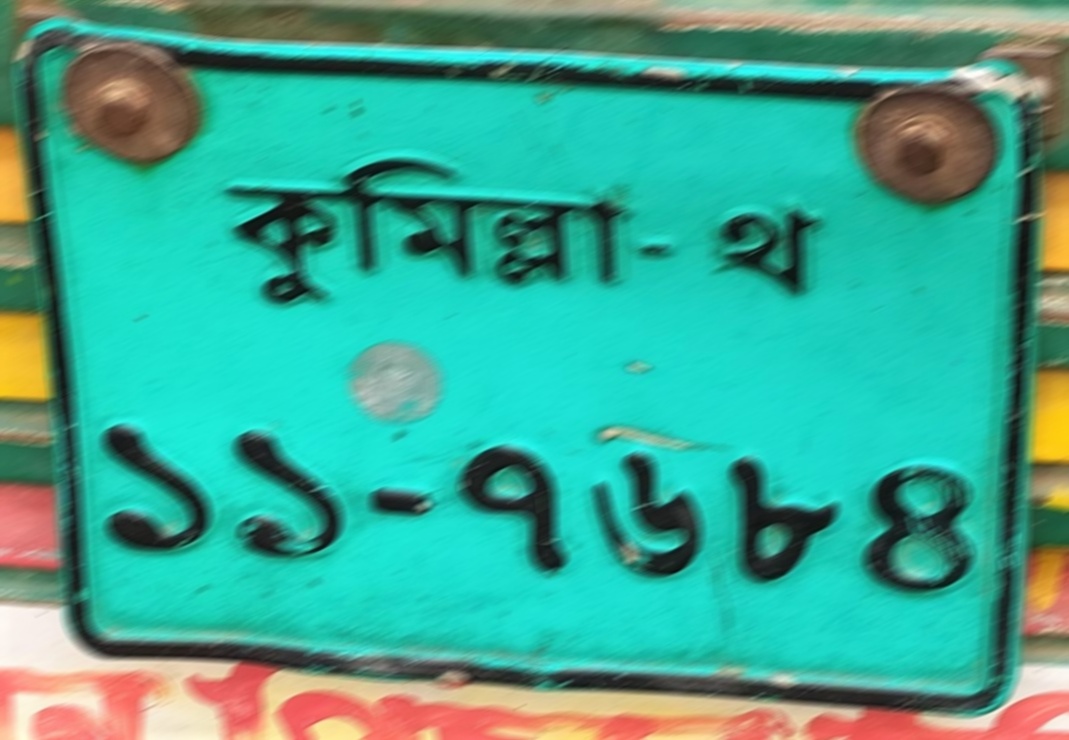 কুমিল্লা-থ
১১-৭৬৮৪